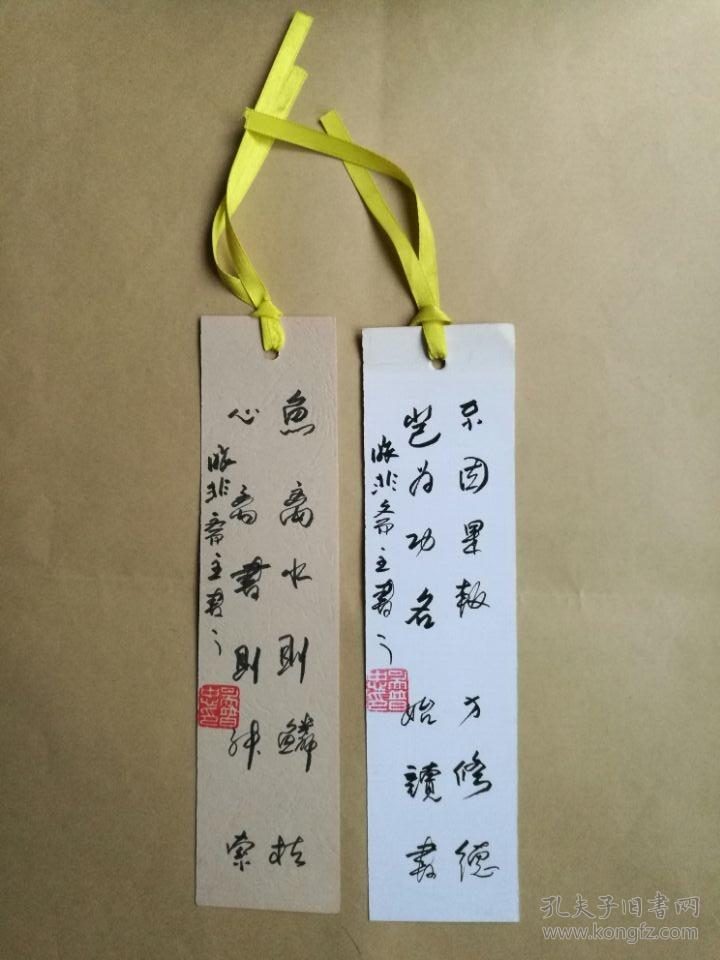 魚离水則鱗枯
心离書則神索
非齋主書之
不因果報方修德
豈为功名始讀書
非齋主書之
孔夫子旧书网
www.kongfz.com